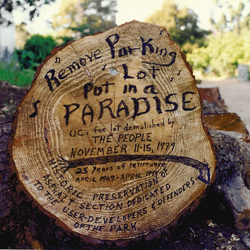 Remove Parking
Lot
Pot in a
PARADISE
U.C. fee lot demolished by
THE PEOPLE
NOVEMBER 11-15, 1979
25 years of
APRIL 1969 - APRIL 1994
HISTORIC PRESERVATION OF
ASPHALT SECTION DEDICATED
TO THE USER-DEVELOPERS & DEFENDERS
OF THE PARK.